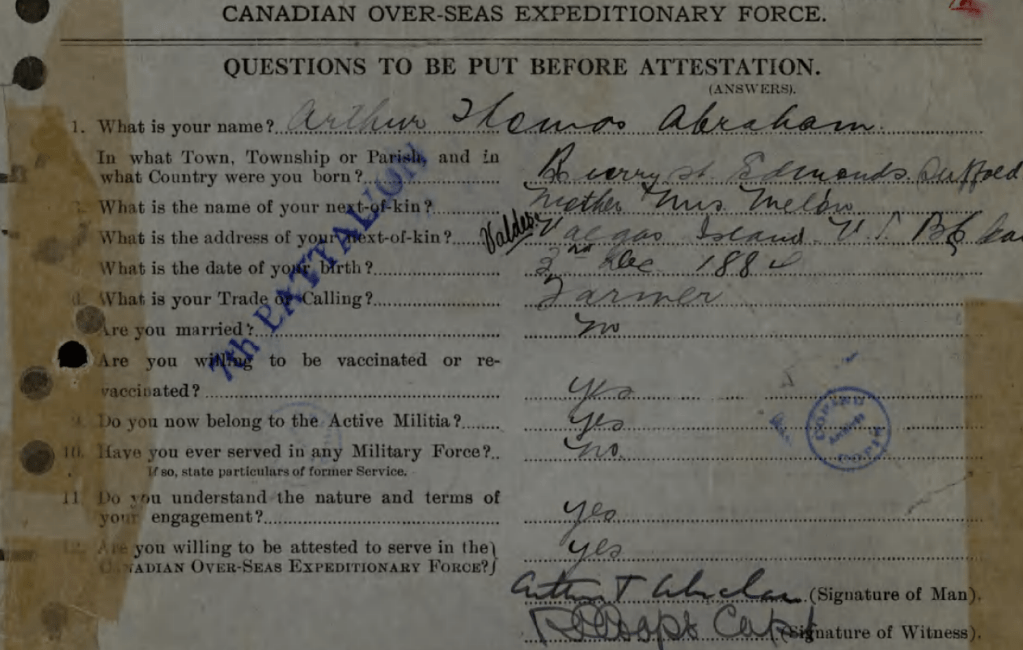 CANADIAN OVER-SEAS EXPEDITIONARY FORCE.
QUESTIONS TO BE PUT BEFORE ATTESTATION.
(ANSWERS).
1. What is your name? Arthur Thomas Abraham
In what Town, Township or Parish, and in
what Country were you born? St Edmonds.
What is the name of your next-of-kin? Mother Mrs
What is the address of your next-of-kin? Valdes Island
What is the date of your birth? Dec 1884
What is your Trade or Calling? Farmer
Are you married? no
Are you willing to be vaccinated or re-
vaccinated? yes
9. Do you now belong to the Active Militia? yes
10. Have you ever served in any Military Force? no.
If so, state particulars of former Service.
11. Do you understand the nature and terms of
your engagement? yes
12. Are you willing to be attested to serve in the
CANADIAN OVER-SEAS EXPEDITIONARY FORCE? yes
7th BATTALION
COPIED
COPIE
Arthur T Abraham (Signature of Man).
Capt (Signature of Witness).